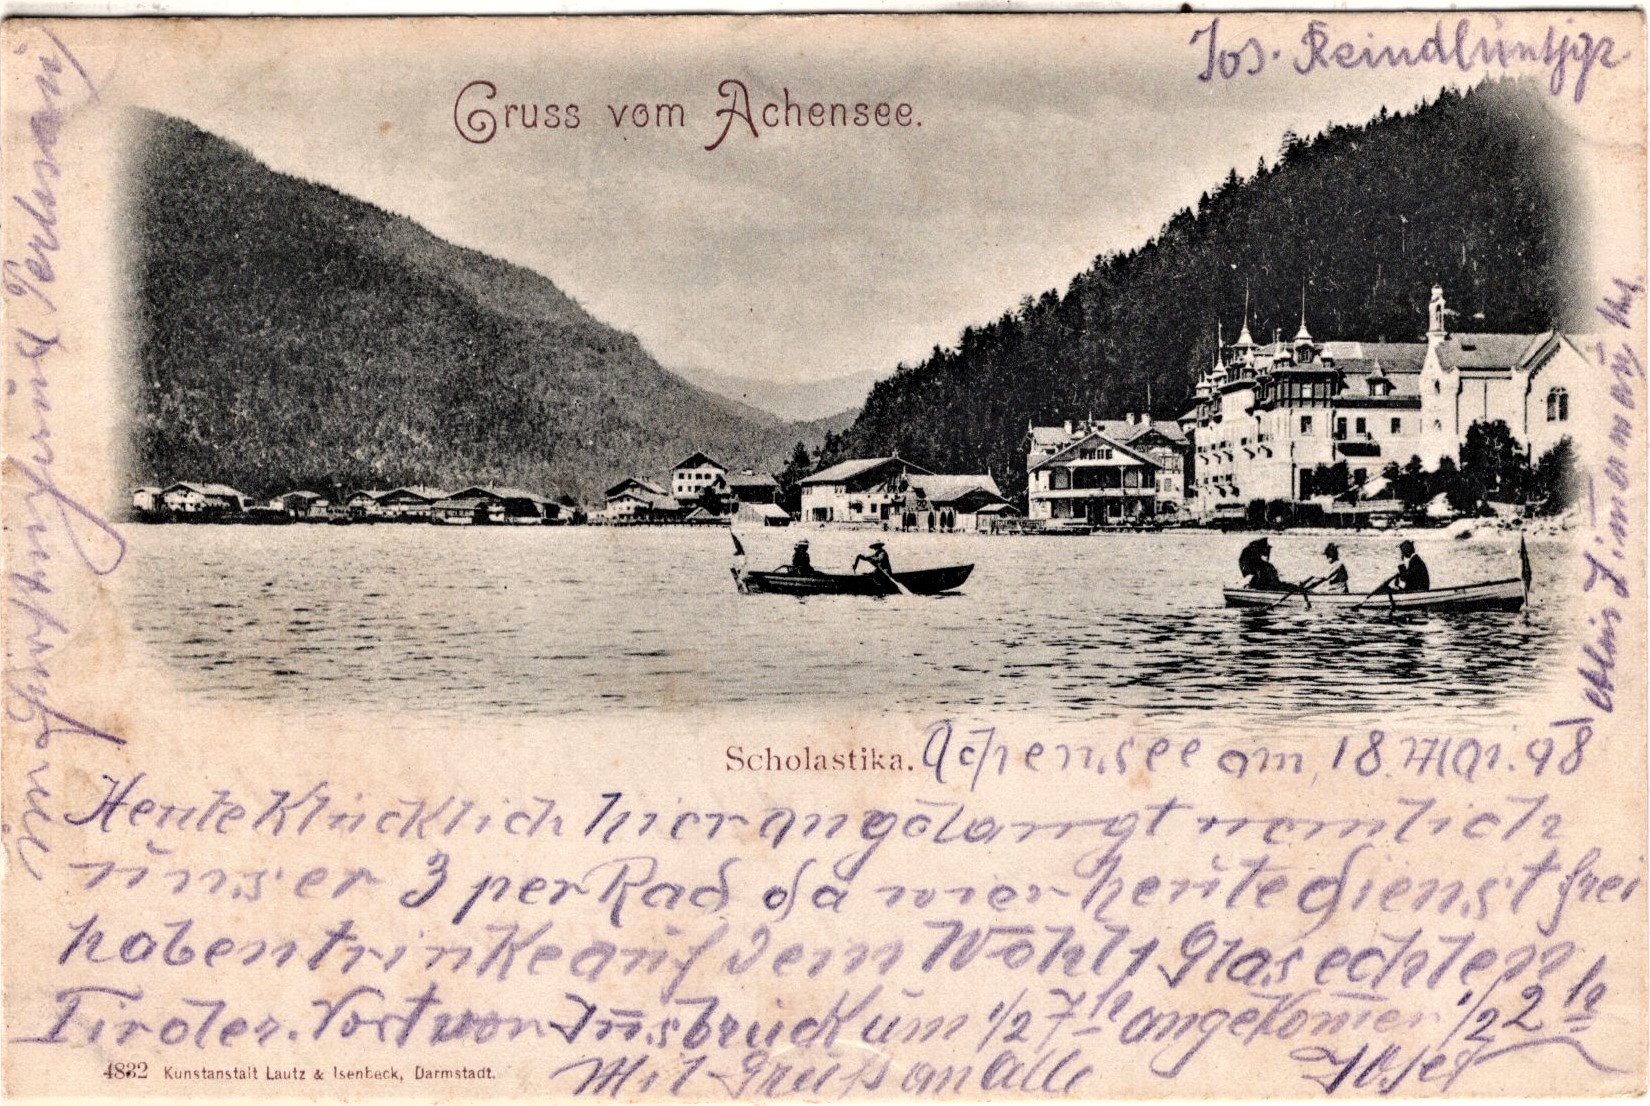 Jos. Reindl Untjgr.
Gruss vom Achensee.
Alois Zimerman
Scholastika.
Achensee am 18. Mai. 98
Heute Klücklich hier angölangt nemlich
unser 3 per Rad da wier heute dienst frei
haben trinke auf dein Wohl 1 Glas echten
Tiroler. Fort von Insbruck um 1/2 7 h angekomen 1/2 2 h
Mit Grüß an Alle Josef
4832 Kunstanstalt Lautz & Isenbeck, Darmstadt.